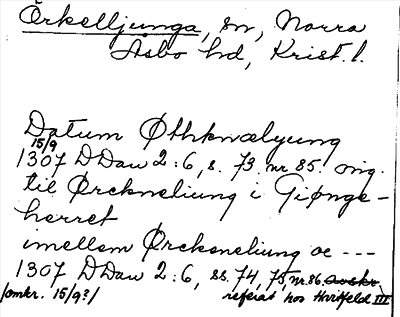 Örkelljunga, sn, Norra
Åsbo hd, Krist. l.
Datum Øthknælyung
15/9
1307 DDan 2:6, s. 73 nr 85. ing.
til Ørckneliung i Giønge-
herret
imellem Ørckneliung oc ---
1307 DDan 2:6, ss. 74, 75, nr. 86.
/omkr. 15/9?/ referat hos Hvitfeld III